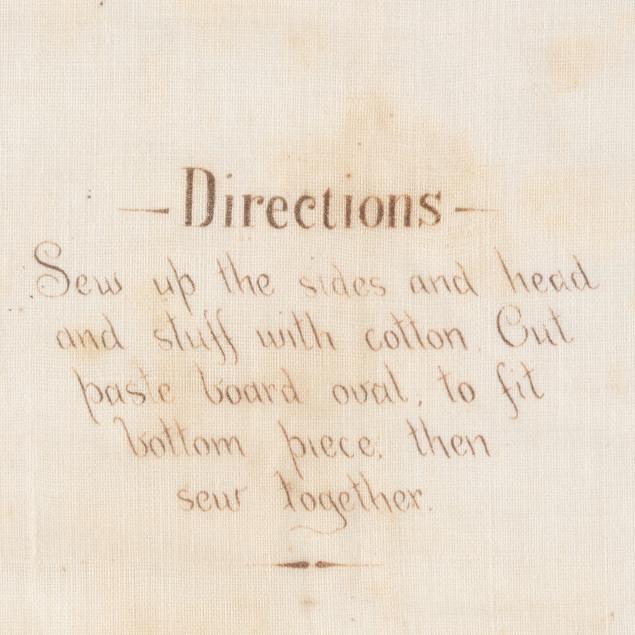 Directions
Sew up the sides and head
and stuff with cotton. Cut
paste board oval, to fit
bottom piece, then
sew together.